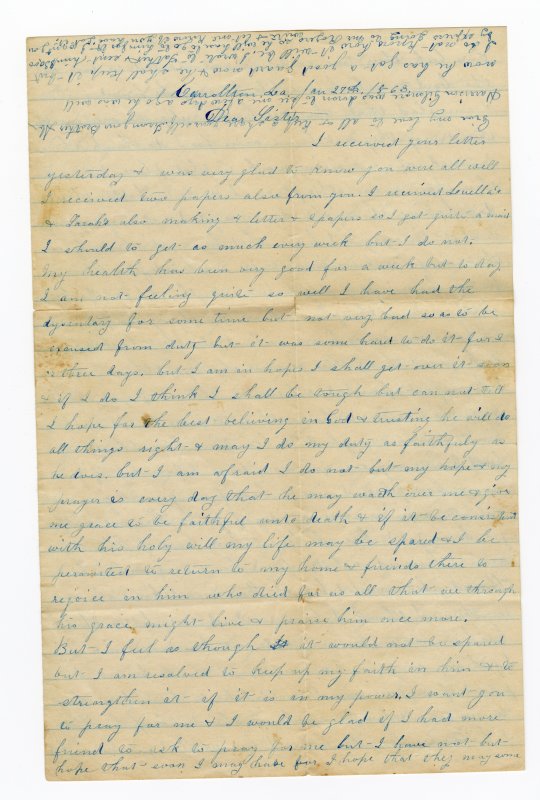 Carrollton, La, Jan 27th, 1863
Dear Sister
I received your letter
yesterday & was very glad to know you were all well
I received two papers also from you. I received Lovella's
& Sarah's also making 4 letters & papers so I got quite a mail
I should to get as much every week but I do not.
My health has been very good for a week but to day
I am not feeling quite so well I have had the
dysentary for some time but not very bad so as to be
excused from duty but it was some hard to do it for 2
or three days. but I am in hopes I shall get over it soon
& if I do I think I shall be tough but can not tell
I hope for the best believing in God & trusting he will do
all things right & may I do my duty as faithfuly as
he does. but I am afraid I do not but my hope & my
prayer is every day that he may wach over me & give
me grace to be faithful unto death & if it be consistent
with his holy will my life may be spared & I be
permitted to return to my home & friends there to
rejoice in him who died for us all that we through
his grace might live & praise him once more.
But I feel as though it would not be spared
but I am resolved to keep up my faith in him & to
strengthen it if it is in my power. I want you
to pray for me & I would be glad if I had more
friend to ask to pray for me but I have not but
hope that soon I may have for I hope that they may some